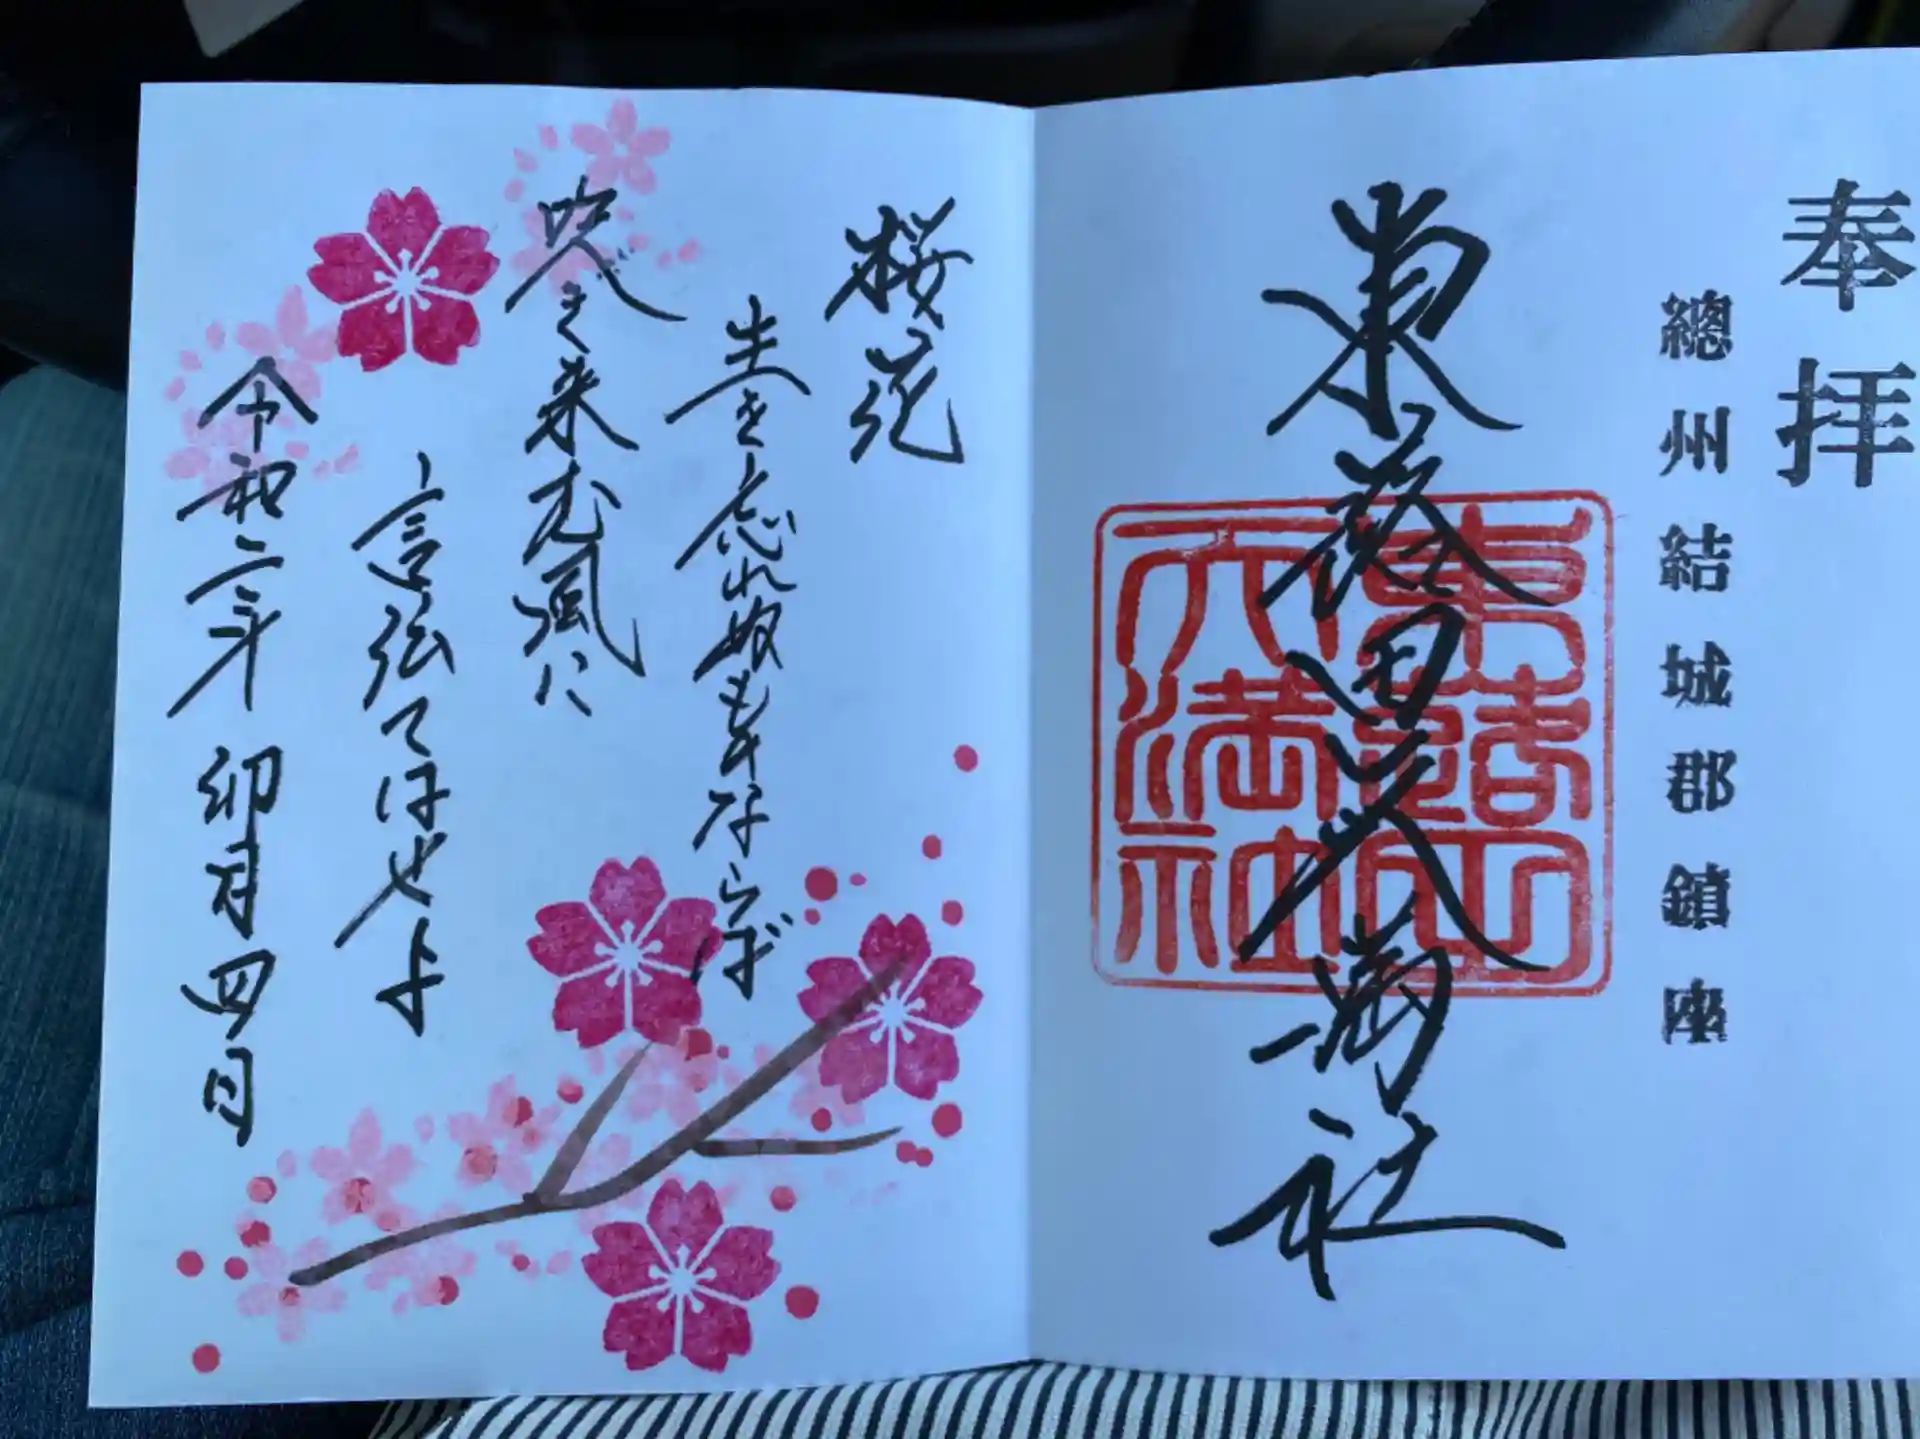 奉拝
總州結城郡鎮座
東蕗田天満社
東蕗田
天満社
桜花
主を忘れぬものならば
吹き来む風に
言伝てはせよ
令和二年 卯月四日